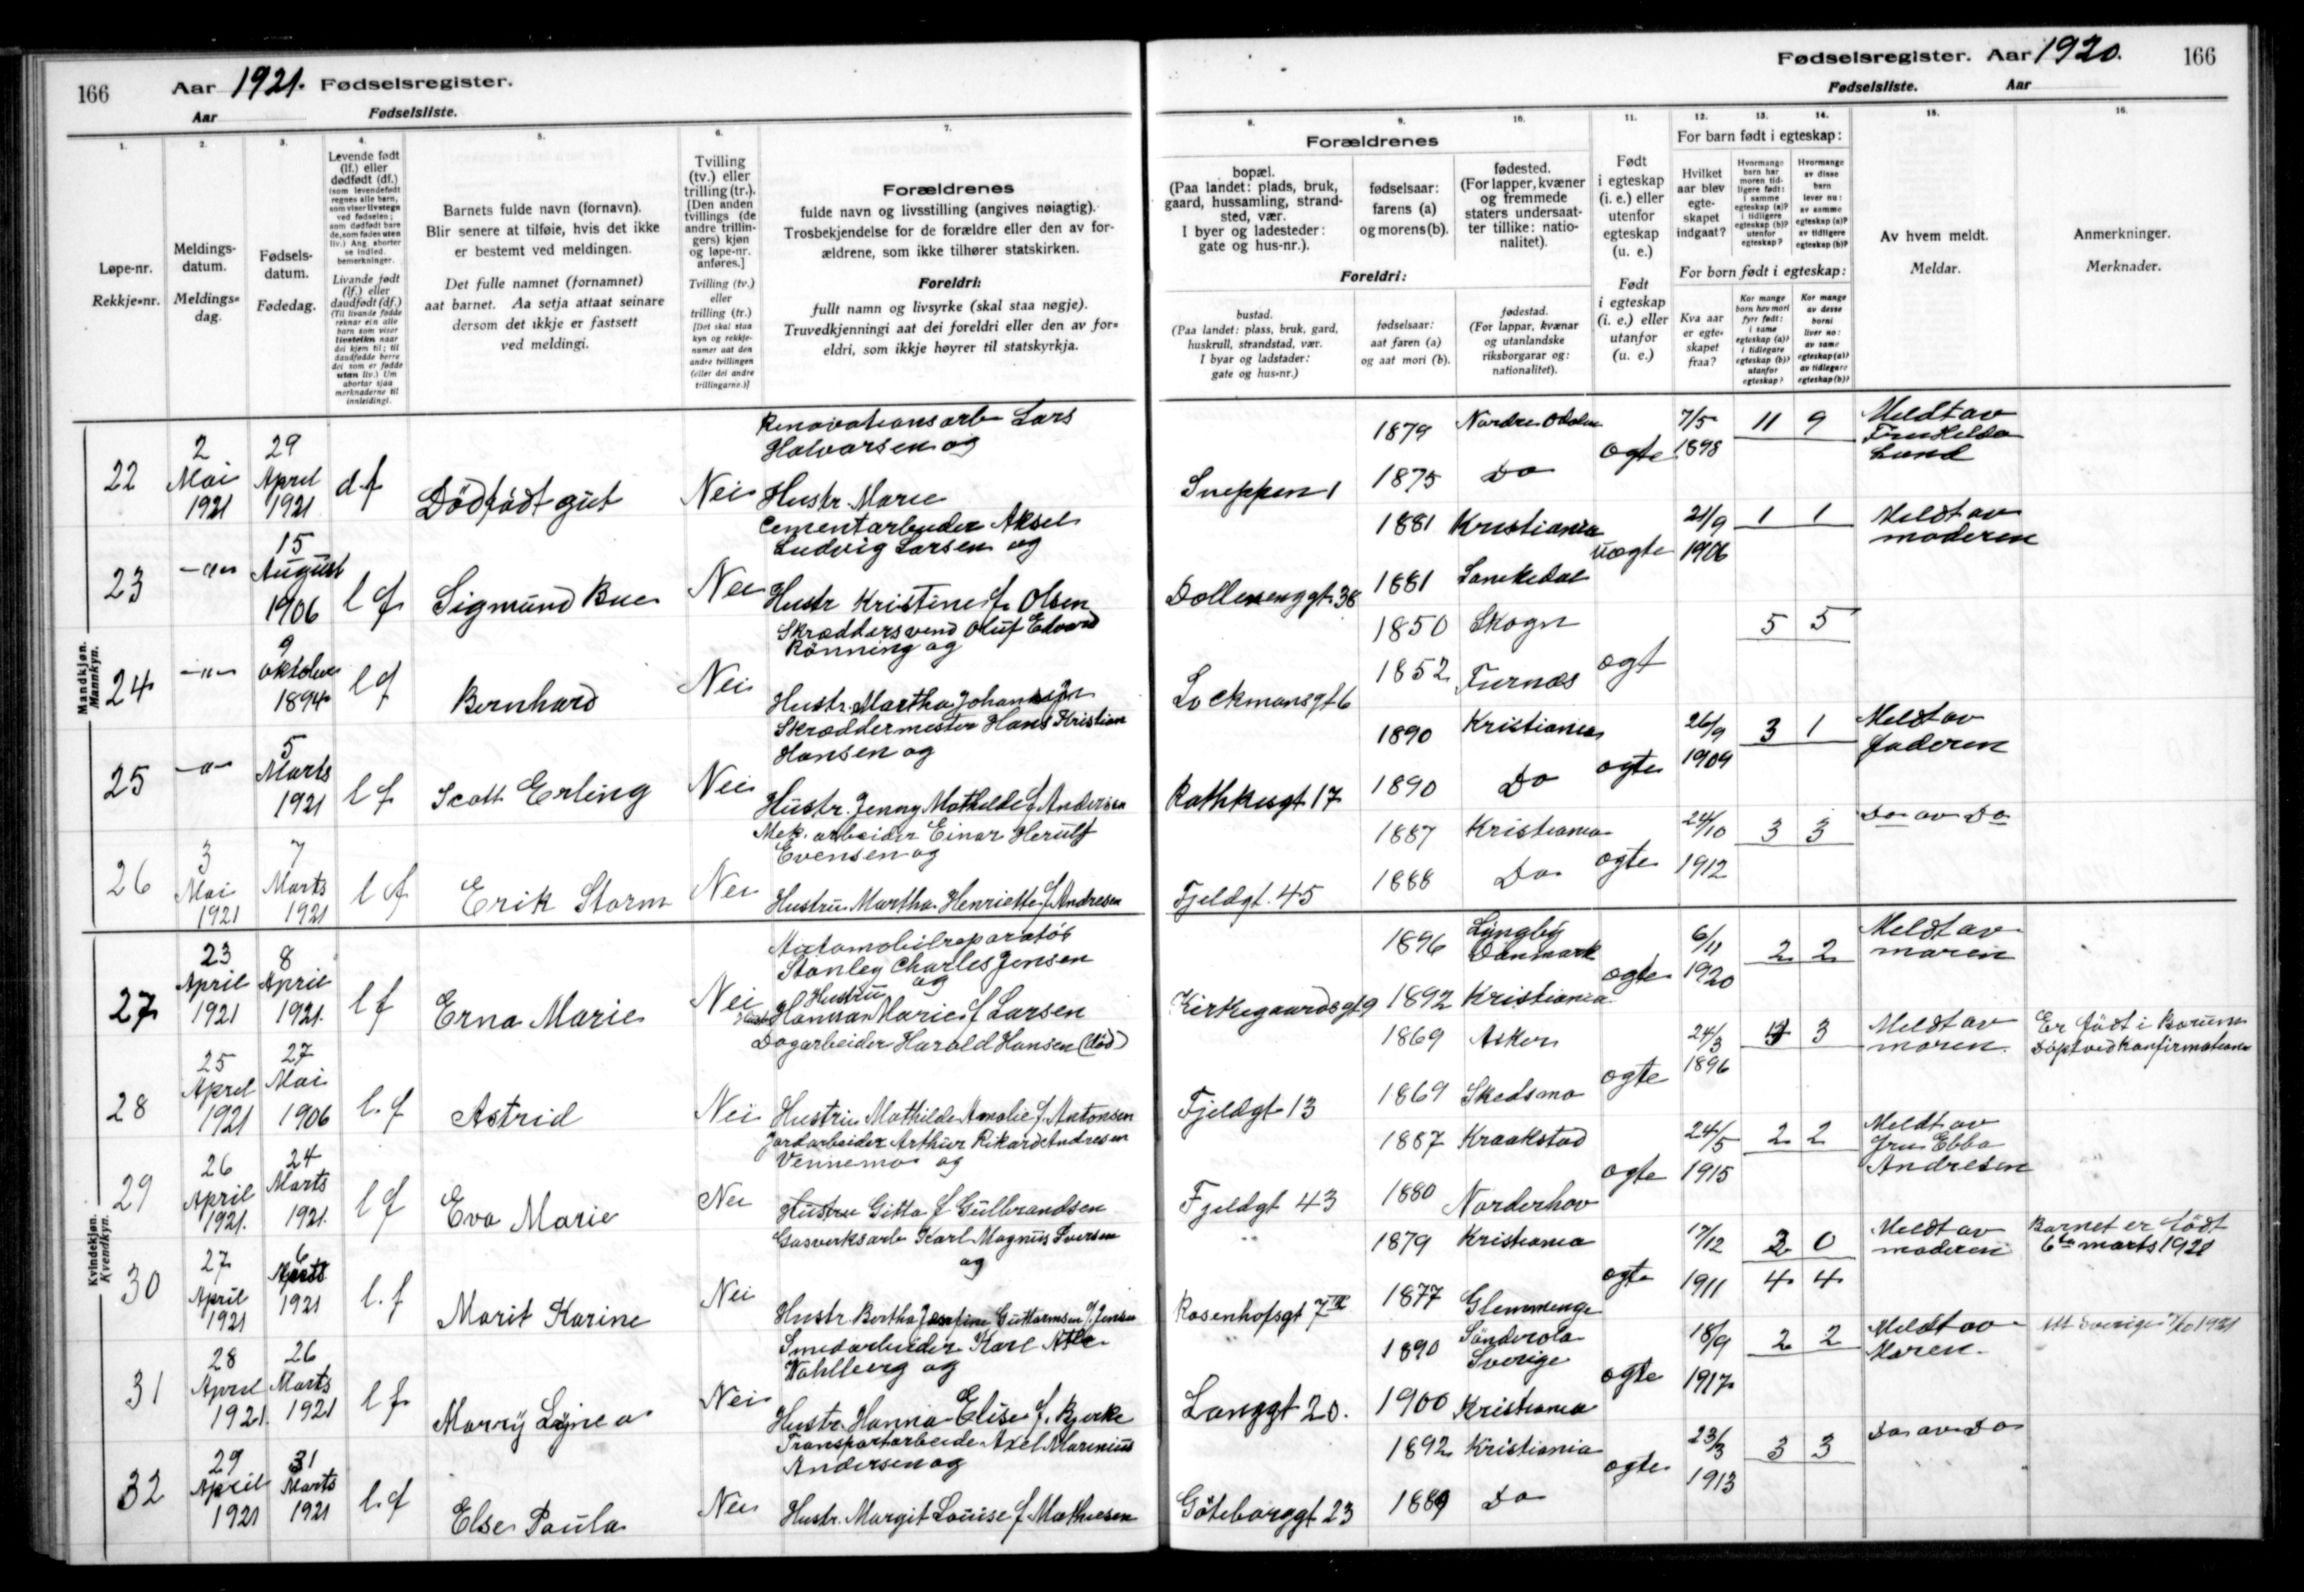 166
Aar 1921. Fødselsregister.
Aar Fødselsliste.
1.
Løpe-nr.
Rekkje=nr.
2.
Meldings-
datum.
Meldings=
dag.
3.
Fødsels-
datum.
Fødedag.
4.
Levende født
(lf.) eller
dødfødt (df.)
(som levendefødt
regnes alle barn,
som viser livstegn
ved fødselen;
som dødfødt bare
de, som fødes uten
liv.) Ang. aborter
se indled.
bemerkninger.
Livande født
(lf.) eller
daudfødt (df.)
(Til livande fødde
reknar ein alle
born som viser
livsteikn naar
dei kjem til; til
daudfødde berre
dei som er fødde
utan liv.) Um
abortar sjaa
merknaderne til
innleidingi.
5.
Barnets fulde navn (fornavn).
Blir senere at tilføie, hvis det ikke
er bestemt ved meldingen.
Det fulle namnet (fornamnet)
aat barnet. Aa setja attaat seinare
dersom det ikkje er fastsett
ved meldingi.
6.
Tvilling
(tv.) eller
trilling (tr.).
[Den anden
tvillings (de
andre trillin-
gers) kjøn
og løpe-nr.
anføres.]
Tvilling (tv.)
eller
trilling (tr.)
[Det skal staa
kyn og rekkje-
numer aat den
andre tvillingen
(eller dei andre
trillingarne.)]
7.
Forældrenes
fulde navn og livsstilling (angives nøiagtig).
Trosbekjendelse for de forældre eller den av for-
ældrene, som ikke tilhører statskirken.
Foreldri:
fullt namn og livsyrke (skal staa nøgje).
Truvedkjenningi aat dei foreldri eller den av for=
eldri, som ikkje høyrer til statskyrkja.
Mandkjøn.
Mannkyn.
22
2
Mai
1921
29
April
1921
df
Dödfødt gut
Nei
Renovationsarb Lars
Halvorsen og
Hustr. Marie
23
-"-
15
August
1906
lf
Sigmund Bue
Nei
Cementarbeider Aksel
Ludvig Larsen og
Hustr Kristine f. Olsen
24
-"-
9
oktober
1894
lf
Bernhard
Nei
Skræddersvend Oluf Edvard
Rönning og
Hustr. Martha
25
-"-
5
Marts
1921
lf
Scott Erling
Nei
Skræddermester Hans Kristian
Hansen og
Hustr. Jenny Mathilde f Andersen
26
3
Mai
1921
7
Marts
1921
lf
Erik Storm
Nei
Mek. arbeider Einar Herulf
Evensen og
Hustru Martha Henriette f Andresen
Kvindekjøn.
Kvendkyn.
27
23
April
1921
8
April
1921.
lf
Erna Marie
Nei
Automobilreparatör
Stanley Charles Jensen
og
Hustru
Hanna Marie f Larsen
28
25
April
1921
27
Mai
1906
l.f
Astrid
Nei
Dagarbeider Harald Hansen (död)
Hustru Mathilde Amalie f. Antonsen
29
26
April
1921.
24
Marts
1921.
lf
Eva Marie
Nei
Jordarbeider Arthur Rikard Andresen
Vennemo og
Hustru Gitta f Gulbrandsen
30
27
April
1921
6
1921
l.f
Marit Karine
Nei
Gasverksarb Karl Magnus Iversen
og
Hustr. Bertha Josefine Guttormsen f. Jensen
31
28
April
1921.
26
Marts
1921
lf
Marry
Nei
Smedarbeider Karl
Wahlberg og
Hustr. Hanna Elise f. Bjerke
32
29
April
1921
31
Marts
1921
l.f
Else Paula
Nei
Transportarbeider Axel Marinius
Andersen og
Hustr. Margit Louise f Mathiesen
Fødselsregister. Aar 1920. 166
Fødselsliste. Aar
8.
Forældrenes
bopæl.
(Paa landet: plads, bruk,
gaard, hussamling, strand-
sted, vær.
I byer og ladesteder:
gate og hus-nr.).
Foreldri:
bustad.
(Paa landet: plass, bruk, gard,
huskrull, strandstad, vær.
I byar og ladstader:
gate og hus=nr.)
9.
fødselsaar:
farens (a)
og morens (b).
fødselsaar:
aat faren (a)
og aat mori (b).
10.
fødested.
(For lapper, kvæner
og fremmede
staters undersaat-
ter tillike: natio-
nalitet).
fødestad.
(For lappar, kvænar
og utanlandske
riksborgarar og:
nationalitet).
11.
Født
i egteskap
(i. e.) eller
utenfor
egteskap
(u. e.)
Født
i egteskap
(i. e.) eller
utanfor
egteskap
(u. e.)
12. 13. 14.
For barn født i egteskap:
Hvilket
aar blev
egte-
skapet
indgaat?
Hvormange
barn har
moren tid-
ligere født:
i samme
egteskap (a)?
i tidligere
egteskap (b)?
utenfor
egteskap?
Hvormange
av disse
barn
lever nu:
av samme
egteskap (a)?
av tidligere
egteskap (b)?
For born født i egteskap:
Kva aar
er egte=
skapet
fraa?
Kor mange
born hev mori
fyrr født:
i same
egteskap (a)?
i tidlegare
egteskap (b)?
utanfor
egteskap?
Kor mange
av desse
borni
liver no:
av same
egteskap (a)?
av tidlegare
egteskap (b)?
15.
Av hvem meldt.
Meldar.
16.
Anmerkninger.
Merknader.
Sneppen 1
1879
1875
Nordre Odalen
Do
ægte
7/5
1898
11 9
Meldt av
Fru Hilda
Lund
Dællenenggt 38
1881
1881
Kristiania
Lanekedal
uægte
21/9
1906
1 1
Meldt av
moderen
Lockmansgt 6
1850
1852
Skogn
Furnæs
ægt
5 5
Rathkesgt 17
1890
1890
Kristiania
Do
ægte
26/9
1909
3 1
Meldt av
faderen
Fjeldgt. 45
1887
1888
Kristiania
Do
ægte
24/10
1912
3 3
Do av Do
Kirkegaardsgt 9
1896
1892
Lyngby
Danmark
Kristiania
ægte
6/11
1920
2 2
Meldt av
moren
Fjeldgt 13
1869
1869
Asker
Skedsmo
ægte
24/3
1896
3
Meldt av
moren.
Er födt i Bærum
Döpt ved Konfirmationen
Fjeldgt 43
1887
1880
Kraakstad
Norderhov
ægte
24/5
1915
2 2
Meldt av
fru Ebba
Andresen
Rosenhofsgt 7
1879
1877
Kristiania
Glemmenge
ægte
17/12
1911
0
4 4
Meldt av
moderen
Barnet er födt
6te marts 1921
Langgt 20.
1890
1900
Sverige
Kristiania
ægte
18/9
1917
2 2
Meldt av
Moren.
Göteborggt 23
1892
1889
Kristiania
Do
ægte
23/3
1913
3 3
Do av Do